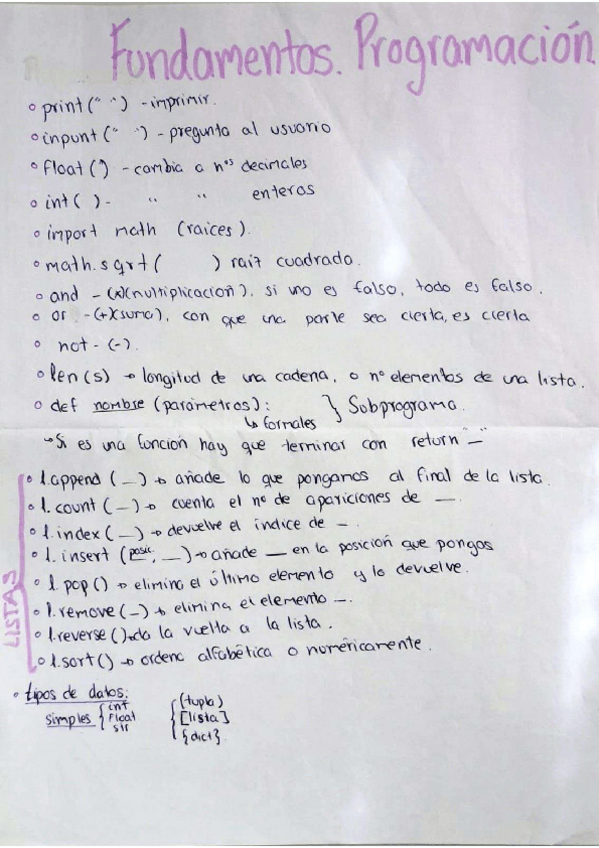 Fundamentos. Programación
o print (" ") - imprimir.
o inpunt (" ") - pregunta al usuario
o float ( ) - cambia a nos decimales
o int ( ) - " " enteros
o import math (raices).
o math.sqrt ( ) raiz cuadrada.
o and - (x)(multiplicación), si uno es falso, todo es falso.
o or - (+)(suma), con que una parte sea cierta, es cierta
o not - (-).
o len (s) → longitud de una cadena, o nº elementos de una lista.
o def nombre (parámetros): } Subprograma.
↳ formales
↪ Si es una función hay que terminar con return "—"
LISTAS
o l.append ( _ ) → añade lo que pongamos al final de la lista.
o l.count ( _ ) → cuenta el nº de apariciones de —.
o l.index ( _ ) → devuelve el índice de —.
o l.insert (posic, _ ) → añade — en la posición que pongas
o l.pop () → elimina el último elemento y lo devuelve.
o l.remove ( _ ) → elimina el elemento —.
o l.reverse () → da la vuelta a la lista.
o l.sort () → ordena alfabética o numéricamente.
o tipos de datos:
simples { int { (tupla)
float [lista]
str {dict}